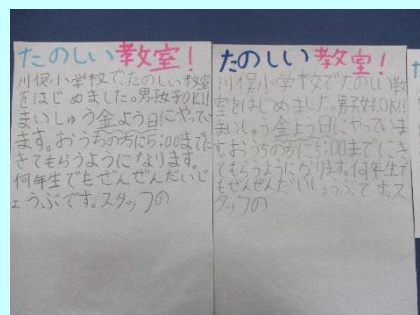 たのしい教室!
川俣小学校でたのしい教室
をはじめました。男子女子OK!!
まいしゅう金よう日にやってい
ます。おうちの方に5:00までに
きてもらうようになります。
何年生でもぜんぜんだいじ
ょうぶです。スタッフの
たのしい教室!
川俣小学校でたのしい教
室をはじめました。男子女子OK!!
まいしゅう金よう日にやっていま
す。おうちの方に5:00までにき
てもらうようになります。何年生で
もぜんぜんだいじょうぶです。スタ
ッフの